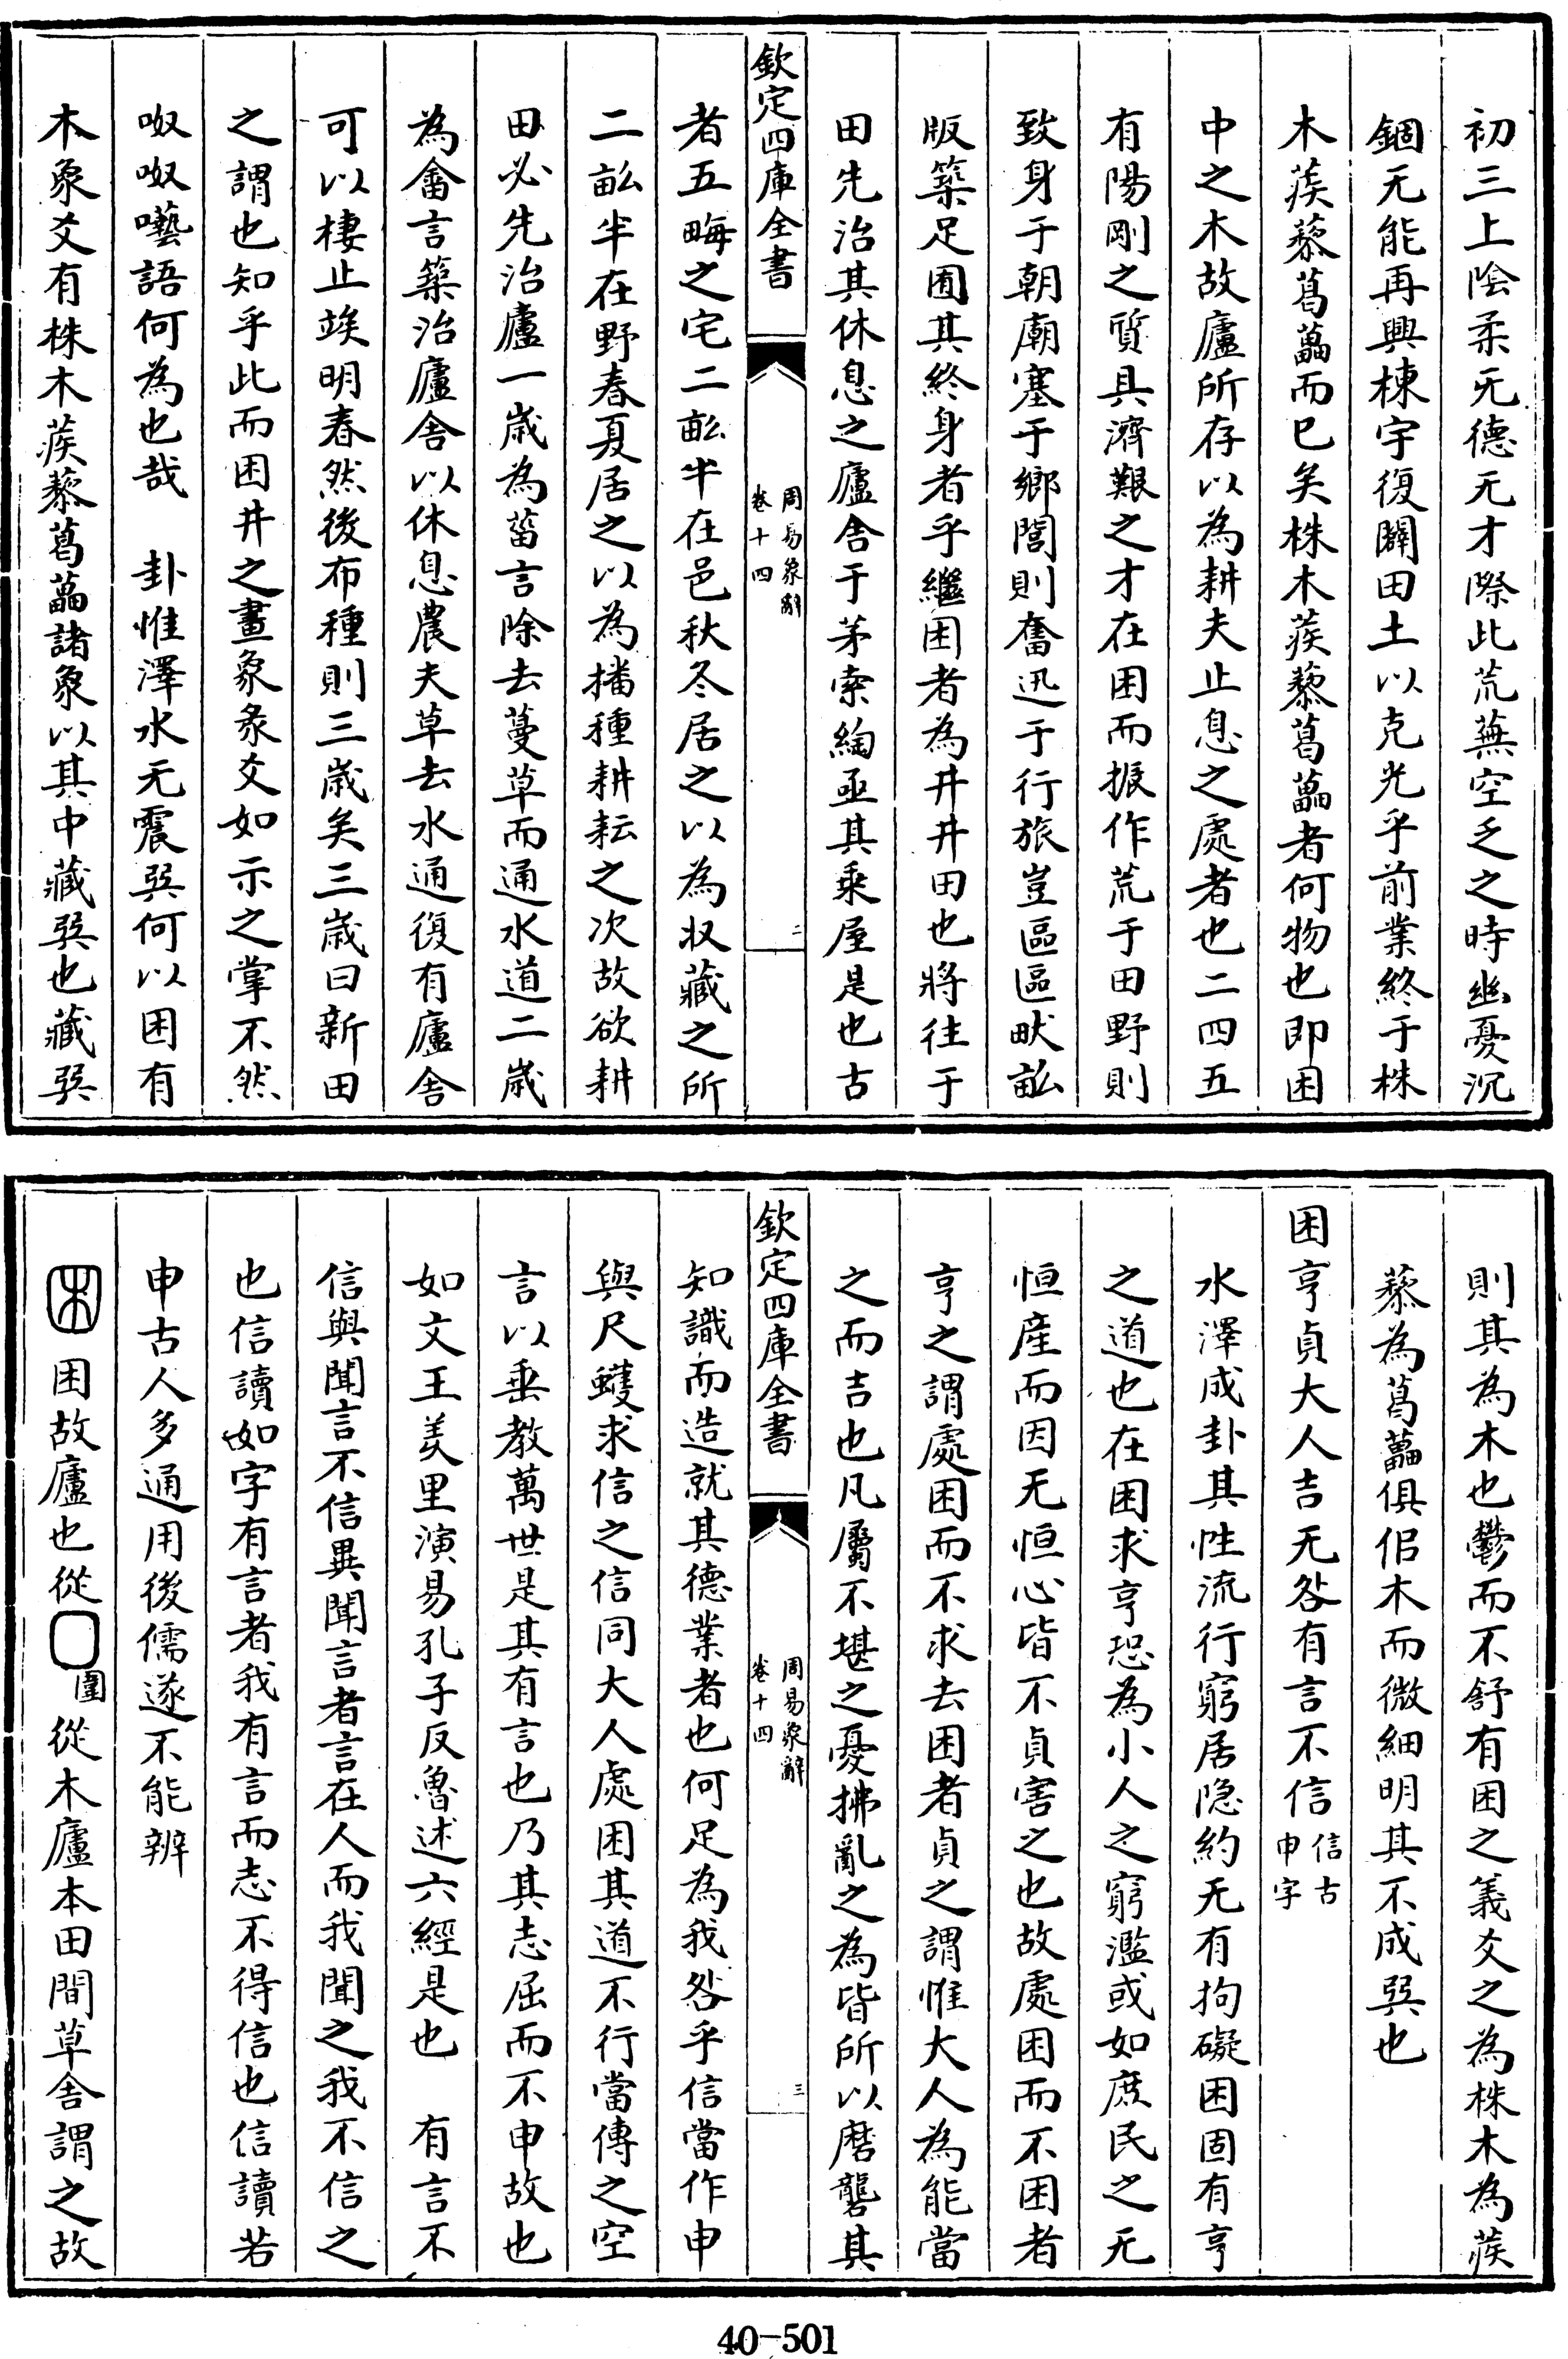 初三上陰柔无德无才際此荒蕪空乏之時幽憂沉
錮无能再興棟宇復闢田土以克光乎前業終于株
木蒺藜葛藟而已矣株木蒺藜葛藟者何物也即困
中之木故廬所存以為耕夫止息之處者也二四五
有陽剛之質具濟艱之才在困而振作荒于田野則
致身于朝廟塞于鄉閭則奮迅于行旅豈區區畎畝
版築足囿其終身者乎繼困者為井井田也將往于
田先治其休息之廬舍于茅索綯亟其乘屋是也古
欽定四庫全書
周易象辭
卷十四
二
者五畮之宅二畝半在邑秋冬居之以為收藏之所
二畝半在野春夏居之以為播種耕耘之次故欲耕
田必先治廬一歲為菑言除去蔓草而通水道二歲
為畬言築治廬舍以休息農夫草去水通復有廬舍
可以棲止竢明春然後布種則三歲矣三歲曰新田
之謂也知乎此而困井之畫象彖爻如示之掌不然
呶呶囈語何為也哉　卦惟澤水无震巽何以困有
木象爻有株木蒺藜葛藟諸象以其中藏巽也藏巽
則其為木也鬱而不舒有困之義爻之為株木為蒺
藜為葛藟俱佀木而微細明其不成巽也
困亨貞大人吉无咎有言不信信古申字
水澤成卦其性流行窮居隐約无有拘礙困固有亨
之道也在困求亨恐為小人之窮濫或如庶民之无
恒產而因无恒心皆不貞害之也故處困而不困者
亨之謂處困而不求去困者貞之謂惟大人為能當
之而吉也凡屬不堪之憂拂亂之為皆所以磨礱其
欽定四庫全書
周易象辭
卷十四
三
知識而造就其德業者也何足為我咎乎信當作申
與尺蠖求信之信同大人處困其道不行當傳之空
言以垂教萬世是其有言也乃其志屈而不申故也
如文王羑里演易孔子反魯述六經是也　有言不
信與聞言不信異聞言者言在人而我聞之我不信之
也信讀如字有言者我有言而志不得信也信讀若
申古人多通用後儒遂不能辨
困故廬也從囗圍從木廬本田間草舍謂之故
40-501